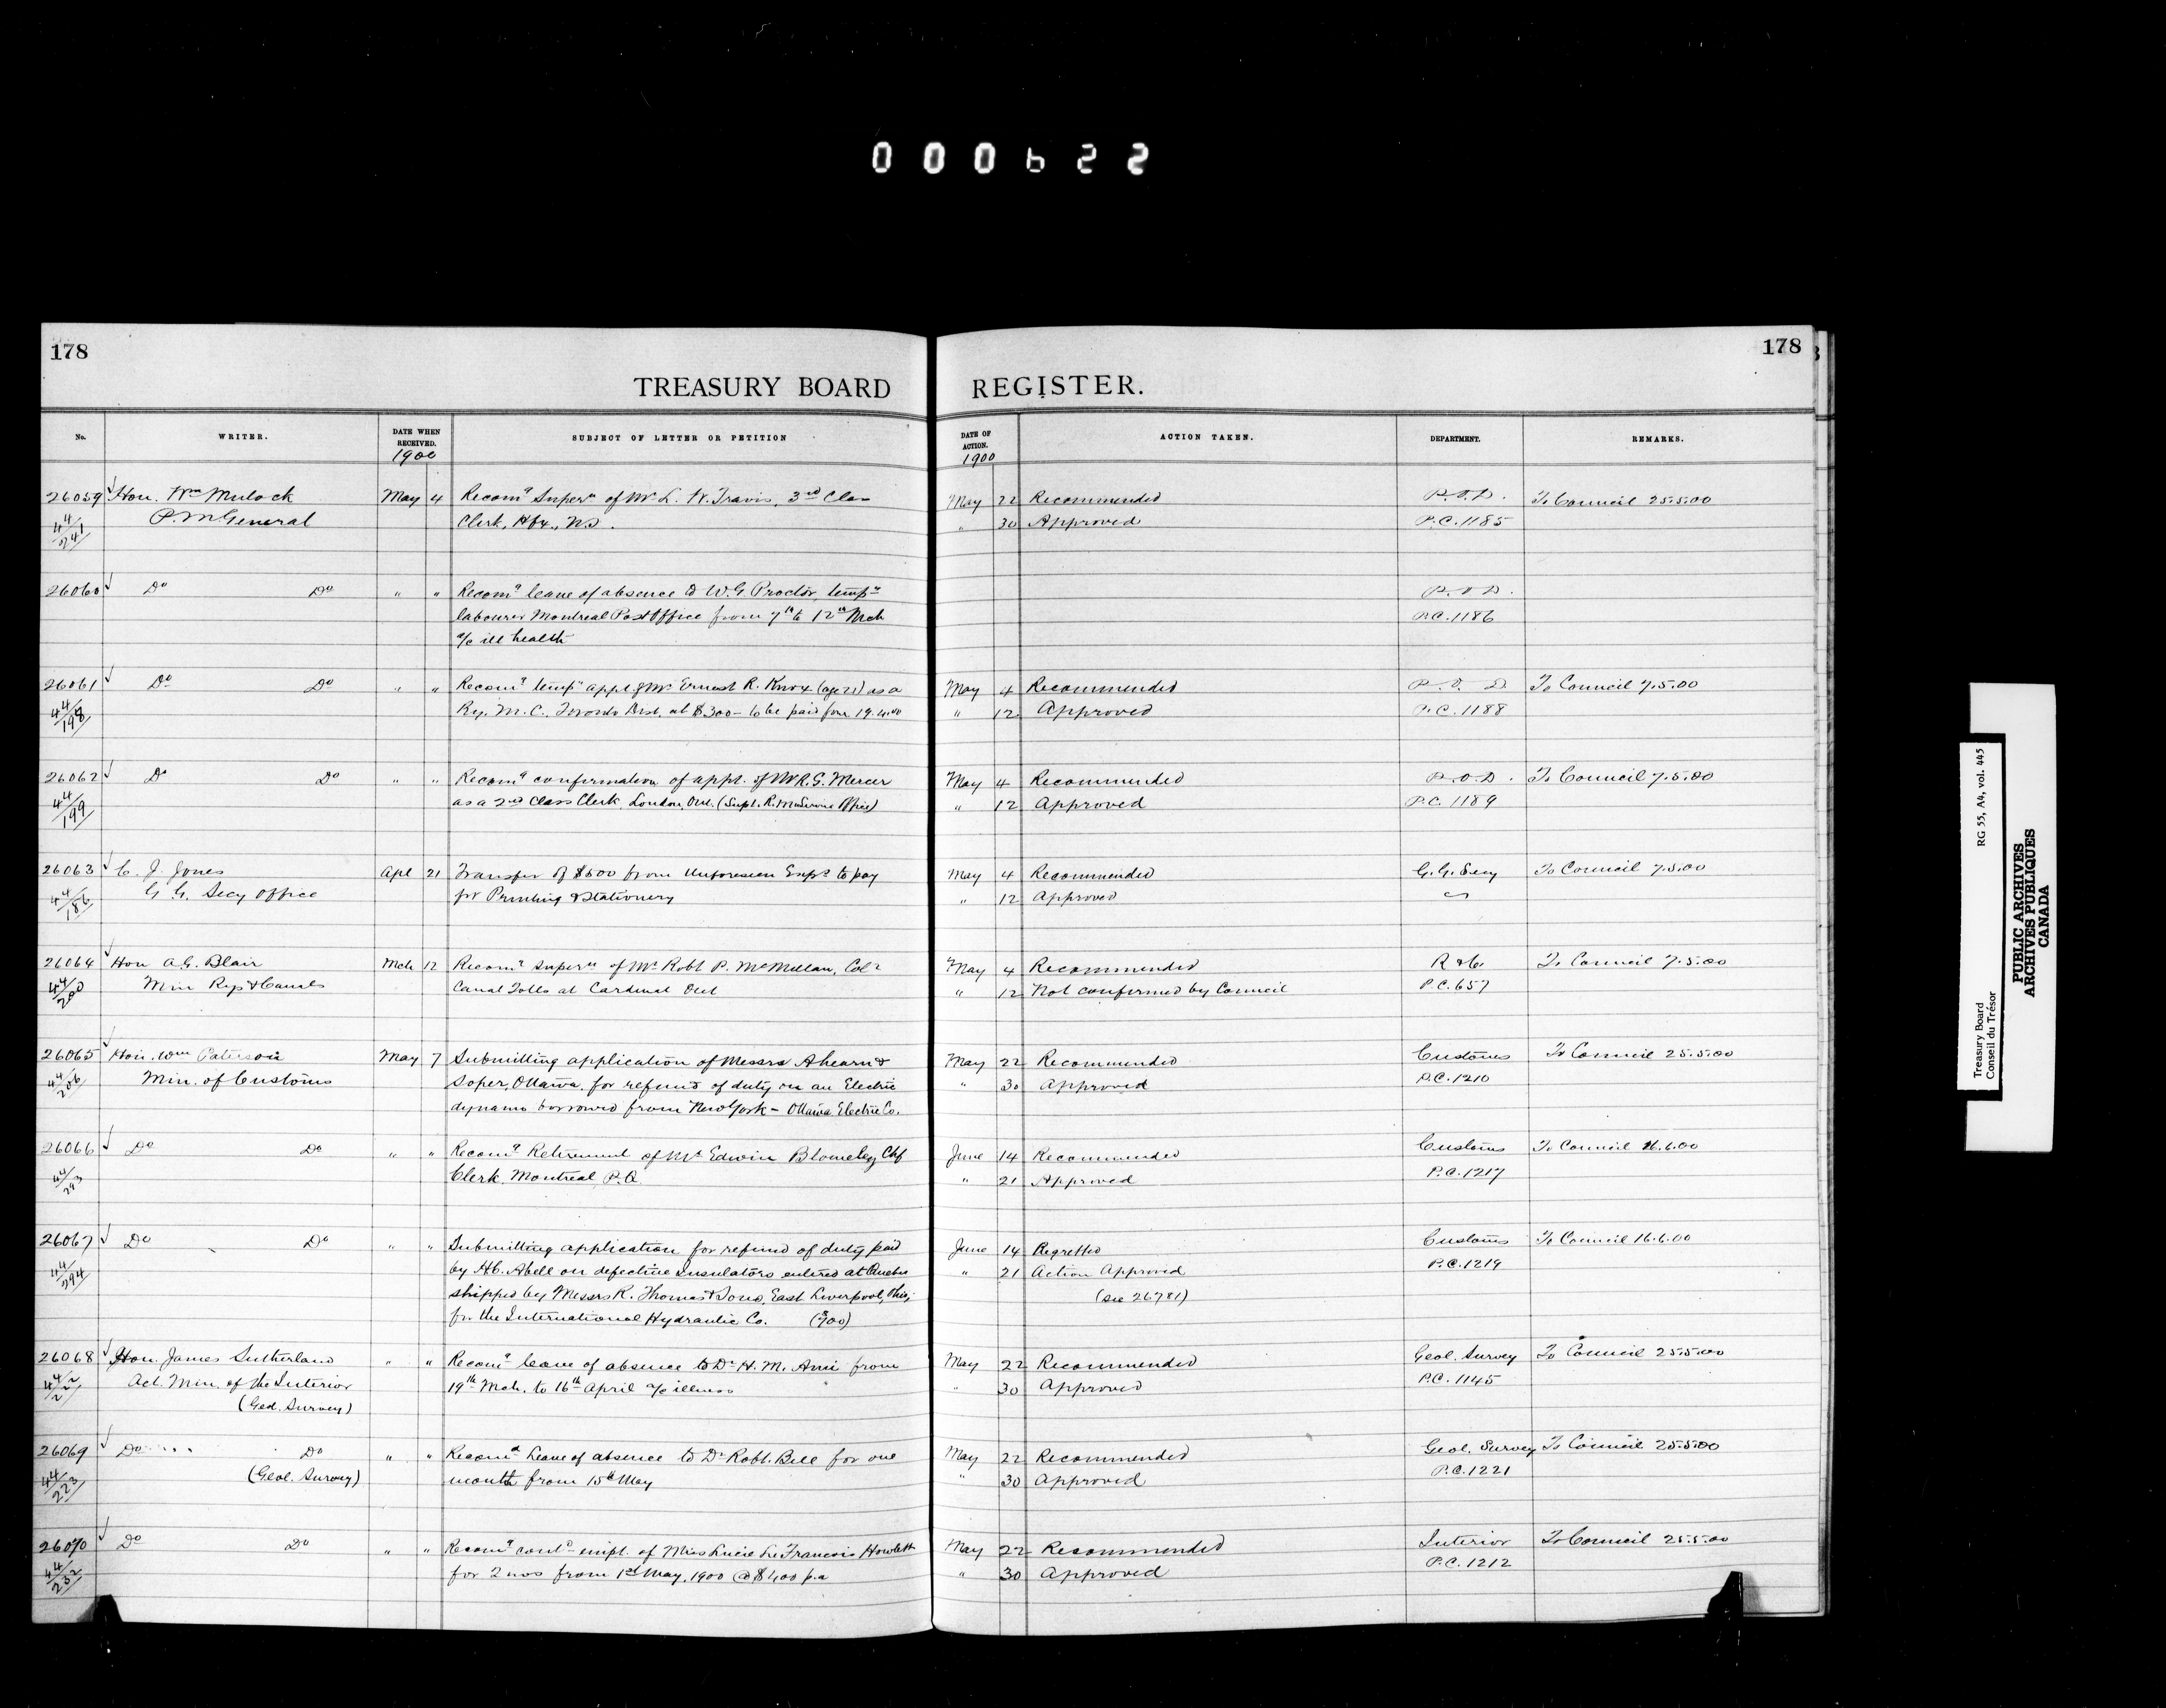 000622
178
178
TREASURY BOARD REGISTER.
No. WRITER. DATE WHEN RECEIVED. SUBJECT OF LETTER OR PETITION DATE OF ACTION. ACTION TAKEN. DEPARTMENT. REMARKS.
1900 1900
26059 Hon. Wm Mulock May 4 Recomg Supern of Mr L. W. Travis, 3rd Class May 22 Recommended P.O.D. To Council 25.5.00
44/241 P.M General Clerk, Hfx., N.S. " 30 Approved P.C. 1185
26060 Do Do " " Recomg leave of absence to W.G Proctor, tempy P.O.D.
labourer Montreal Post Office from 7th to 12th Mch P.C. 1186
a/c ill health
26061 Do Do " " Recomg tempy appt. of Mr Ernest R. Knox (age 21) as a May 4 Recommended P.O.D. To Council 7.5.00
44/198 Ry. M. C., Toronto Dist. at $300 - to be paid from 19.4.00 " 12 Approved P.C. 1188
26062 Do Do " " Recomg confirmation of appt. of Mr R.G. Mercer May 4 Recommended P.O.D. To Council 7.5.00
44/199 as a 2nd Class Clerk, London, Ont. (Supt. R.M Service Office) " 12 Approved P.C. 1189
26063 C. J. Jones Apl 21 Transfer of $500 from Unforeseen Exps to pay May 4 Recommended G.G. Secy To Council 7.5.00
44/186 G G. Secy Office for Printing & Stationery " 12 Approved
26064 Hon A.G. Blair Mch 12 Recomg Supern of Mr Robt P. McMillan, Colr May 4 Recommended R & C. To Council 7.5.00
44/200 Min Rys & Canals Canal Tolls at Cardinal Ont " 12 Not confirmed by Council P.C. 657
26065 Hon. Wm Paterson May 7 Submitting application of Messrs Ahearn & May 22 Recommended Customs To Council 25.5.00
44/206 Min. of Customs Soper, Ottawa, for refund of duty on an Electric " 30 Approved P.C. 1210
dynamo borrowed from New York - Ottawa Electric Co.
26066 Do Do " " Recomg Retirement of Mr Edwin Blomeley Chf June 14 Recommended Customs To Council 16.6.00
44/293 Clerk. Montreal P.Q. " 21 Approved P.C. 1217
26067 Do Do " " Submitting application for refund of duty paid June 14 Regretted Customs To Council 16.6.00
44/294 by H.C. Abell on defective Insulators entered at Quebec " 21 Action Approved P.C. 1219
shipped by Messrs R. Thomas & Sons, East Liverpool, Ohio, (See 26781)
for the International Hydraulic Co.
26068 Hon. James Sutherland " " Recomg leave of absence to Dr H. M. Ami from May 22 Recommended Geol. Survey To Council 25.5.00
Act. Min. of the Interior 19th Mch. to 16th April a/c illness " 30 Approved P.C. 1145
(Geol. Survey)
26069 Do Do " " Recomd Leave of absence to Dr Robt. Bell for one May 22 Recommended Geol. Survey To Council 25.5.00
44/223 (Geol. Survey) month from 15th May " 30 Approved P.C. 1221
26070 Do Do " " Recomg contd empt. of Miss Lucie Le Francois Howlett May 22 Recommended Interior To Council 25.5.00
44/232 for 2 mos from 1st May, 1900 @ $400 p.a " 30 Approved P.C. 1212
Treasury Board RG 55, A4, vol. 445
Conseil du Trésor
PUBLIC ARCHIVES
ARCHIVES PUBLIQUES
CANADA